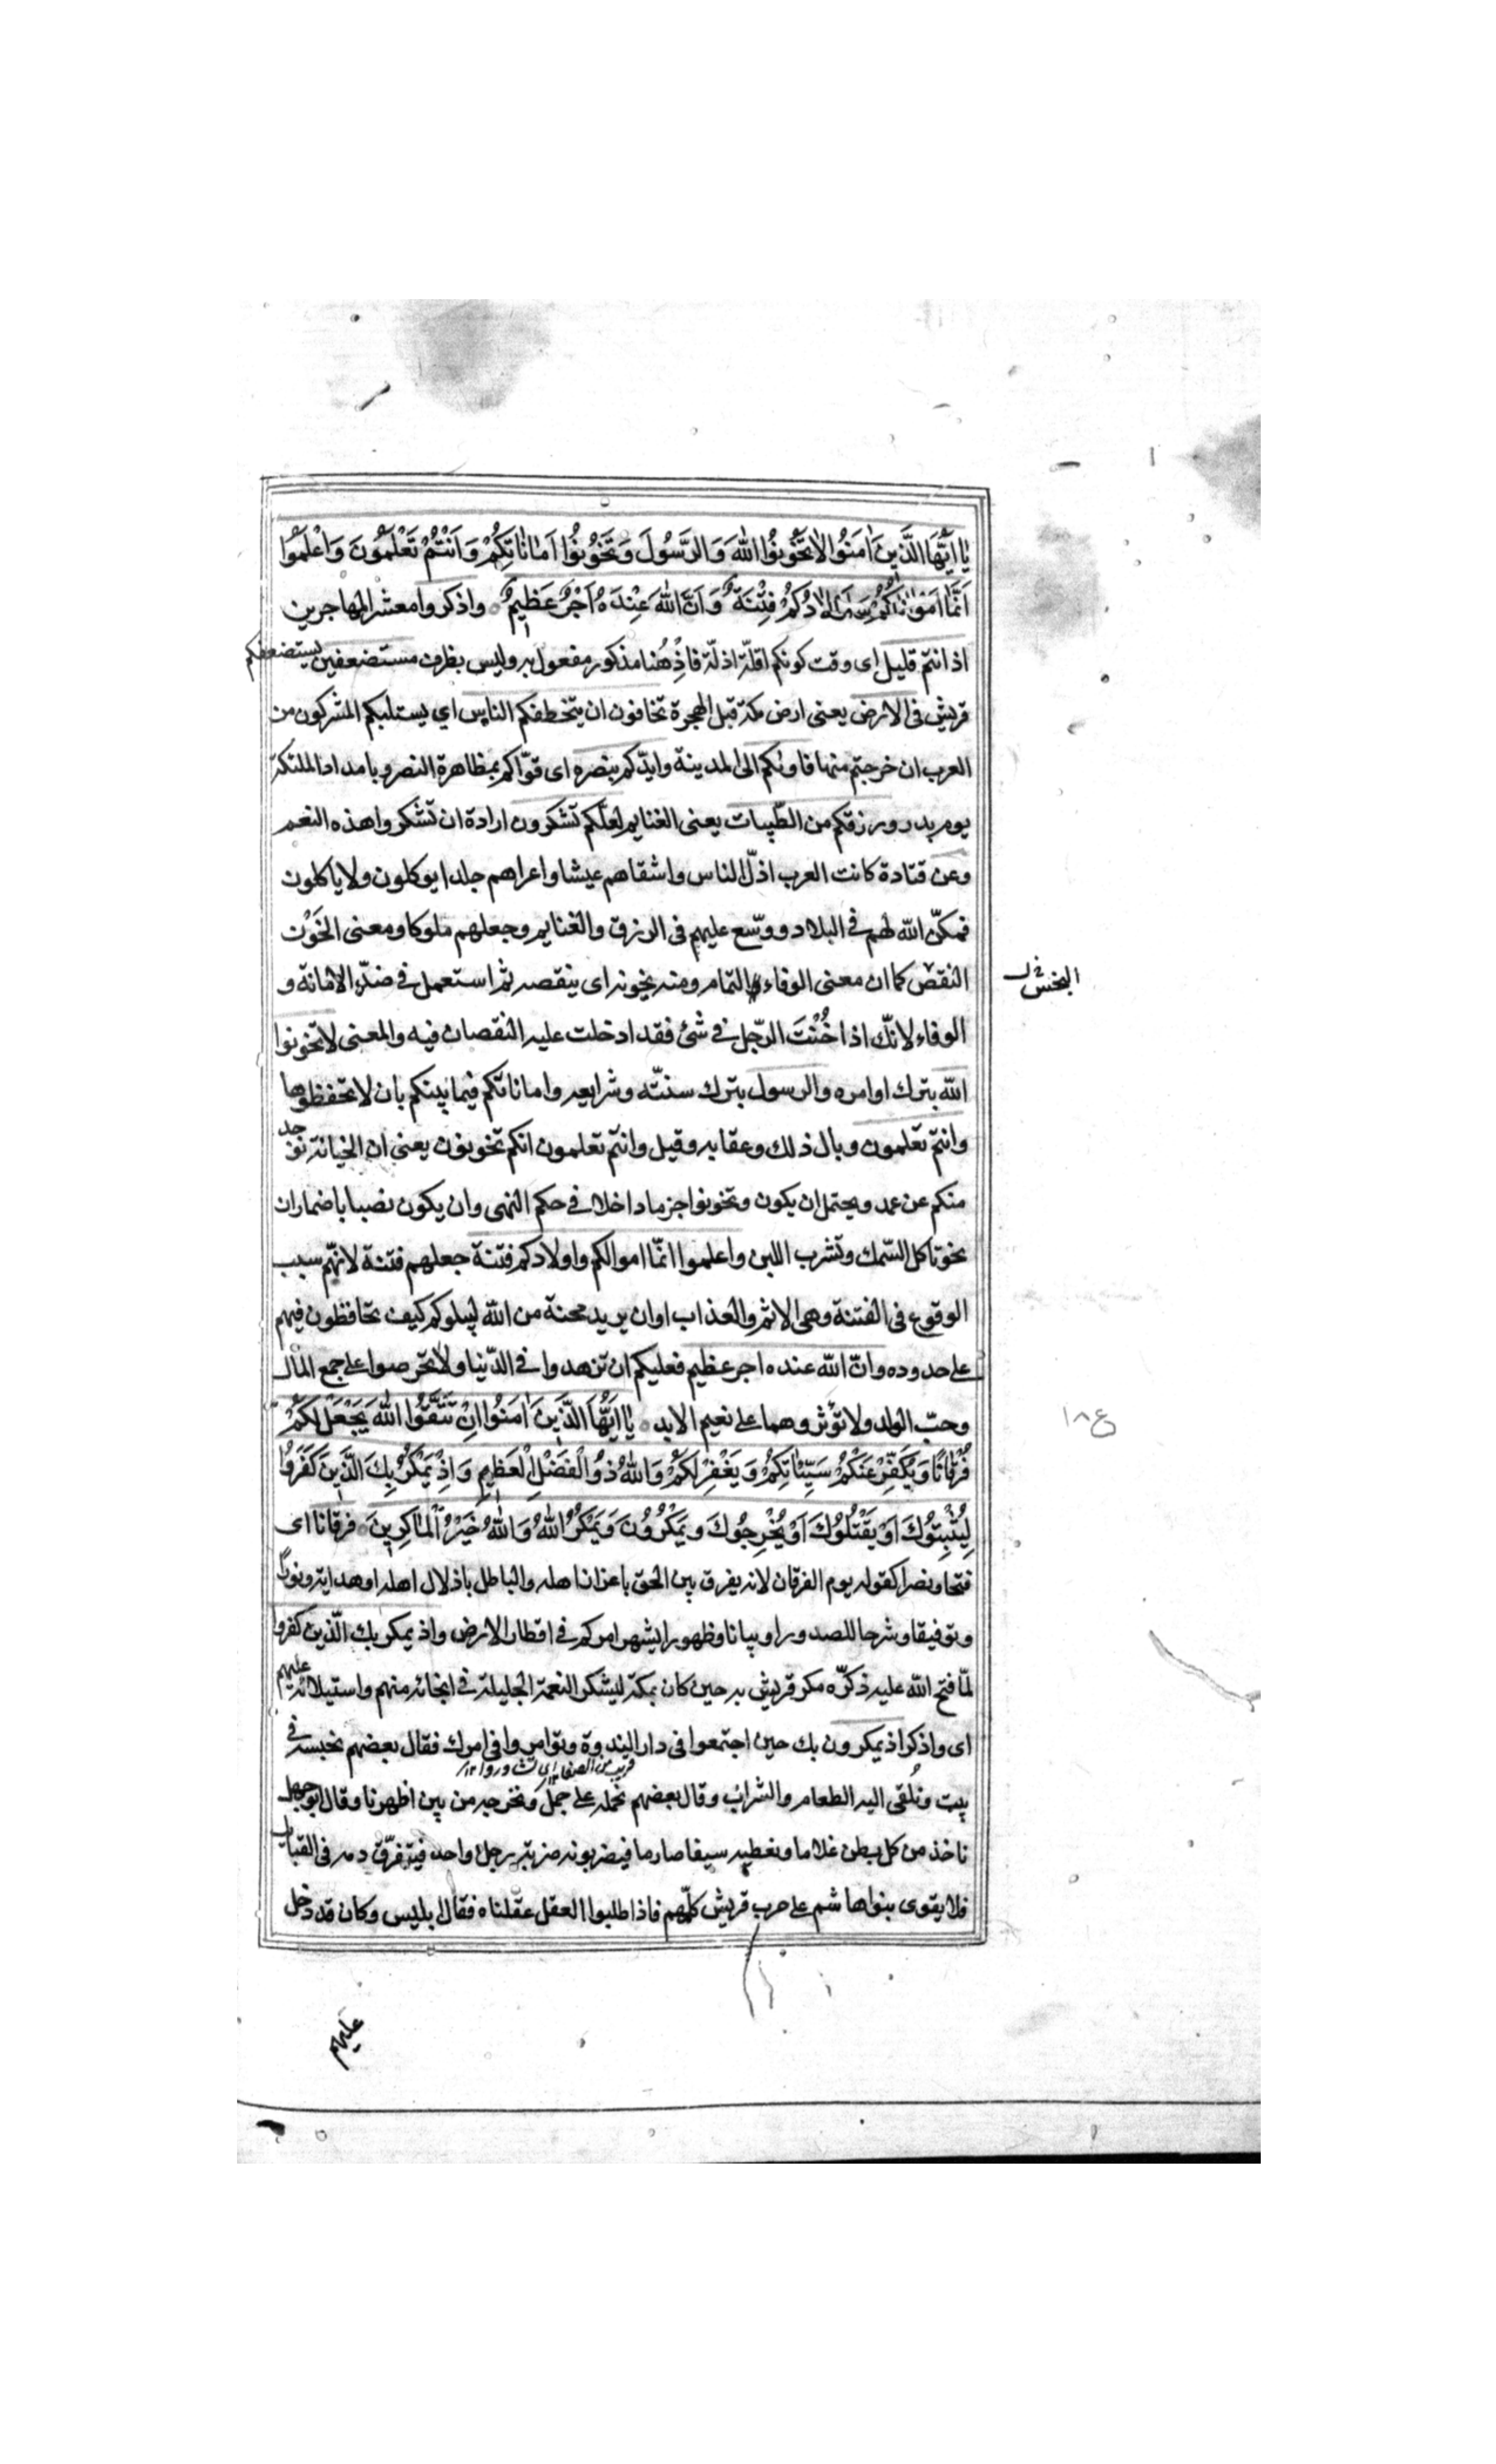 يا ايُّهَا الَّذِينَ اٰمَنُوا لا تَخُونُوا اللهَ وَالرَّسُولَ وَتَخُونُوا اَمَانَاتِكُمْ وَاَنْتُمْ تَعْلَمُونَ وَاعْلَمُوا
اَنَّمَا اَمْوَالُكُمْ وَاَوْلَادُكُمْ فِتْنَةٌ وَاَنَّ اللهَ عِنْدَهُ اَجْرٌ عَظِيمٌ واذكروا معشر المهاجرين
اذ انتم قليل اى وقت كونكم اقلّة اذلّة فاذ هُنا مذكور مفعول به وليس بظرف مستضعفين يستضعفكم
قريش فى الارض يعنى ارض مكة قبل الهجرة تخافون ان يتخطفكم الناس اي يستلبكم المشركون من
العرب ان خرجتم منها فاوٰىكم الى المدينة وايّدكم بنصره اى قوّاكم بمظاهرة النصر وبامداد الملئكة
يوم بدر ورزقكم من الطّيبات يعنى الغنايم لعلّكم تشكرون ارادة ان تشكروا هذه النعم
وعن قتادة كانت العرب اذلّ الناس واشقاهم عيشا واعراهم جلدا يوكلون ولا ياكلون
فمكّن الله لهم فى البلاد ووسّع عليهم فى الرزق والغنايم وجعلهم ملوكا ومعنى الخَوْن
النقص كما ان معنى الوفاء التمام ومنه يخونه اى ينقصه ثم استعمل فى ضدّ الامانة و
الوفاء لانّك اذا خُنْتَ الرّجل فى شئ فقد ادخلت عليه النقصان فيه والمعنى لا تخونوا
الله بترك اوامره والرسول بترك سنّته وشرايعه واماناتكم فيما بينكم بان لا تحفظوها
وانتم تعلمون وبال ذلك وعقابه وقيل وانتم تعلمون انكم تخونون يعنى ان الخيانة توجد
منكم عن عمد ويحتمل ان يكون وتخونوا جزما داخلا فى حكم النهى وان يكون نصبا باضمار ان
نحو تاكل السّمك وتشرب اللبن واعلموا انّما اموالكم واولادكم فتنة جعلهم فتنة لانّهم سبب
الوقوع فى الفتنة وهى الاثم والعذاب او ان يريد محنة من الله ليبلوكم كيف تحافظون فيهم
على حدوده وانّ الله عنده اجر عظيم فعليكم ان تزهدوا فى الدّنيا ولا تحرصوا على جمع المال
وحبّ الولد ولا تؤثروهما على نعيم الابد يا ايُّهَا الَّذِينَ اٰمَنُوا اِنْ تَتَّقُوا اللهَ يَجْعَلْ لَكُمْ
فُرْقَانًا وَيُكَفِّرْ عَنْكُمْ سَيِّئَاتِكُمْ وَيَغْفِرْ لَكُمْ وَاللهُ ذُو الْفَضْلِ الْعَظِيمِ وَاِذْ يَمْكُرُ بِكَ الَّذِينَ كَفَرُوا
لِيُثْبِتُوكَ اَوْ يَقْتُلُوكَ اَوْ يُخْرِجُوكَ وَيَمْكُرُونَ وَيَمْكُرُ اللهُ وَاللهُ خَيْرُ الْمَاكِرِينَ فرقانا اى
فتحا ونصرا كقوله يوم الفرقان لانه يفرق بين الحق باعزاز اهله والباطل باذلال اهله او هداية ونورًا
وتوفيقا وشرحا للصدور او بيانا وظهورا يشهر امركم فى اقطار الارض واذ يمكر بك الّذين كفروا
لمّا فتح الله عليه ذكّره مكر قريش به حين كان بمكة ليشكر النعمة الجليلة فى انجائه منهم واستيلائه عليهم
اى واذكر اذ يمكرون بك حين اجتمعوا فى دار الندوة وتوامروا فى امرك فقال بعضهم نحبسه فى
بيت ونُلقى اليه الطعام والشراب وقال بعضهم نحمله على جمل ونخرجه من بين اظهرنا وقال ابو جهل
ناخذ من كل بطن غلاما ونعطيه سيفا صارما فيضربونه ضربة رجل واحد فيتفرّق دمه فى القبايل
فلا يقوى بنو هاشم على حرب قريش كلّهم فاذا طلبوا العقل عقلناه فقال ابليس وكان قد دخل
عليهم